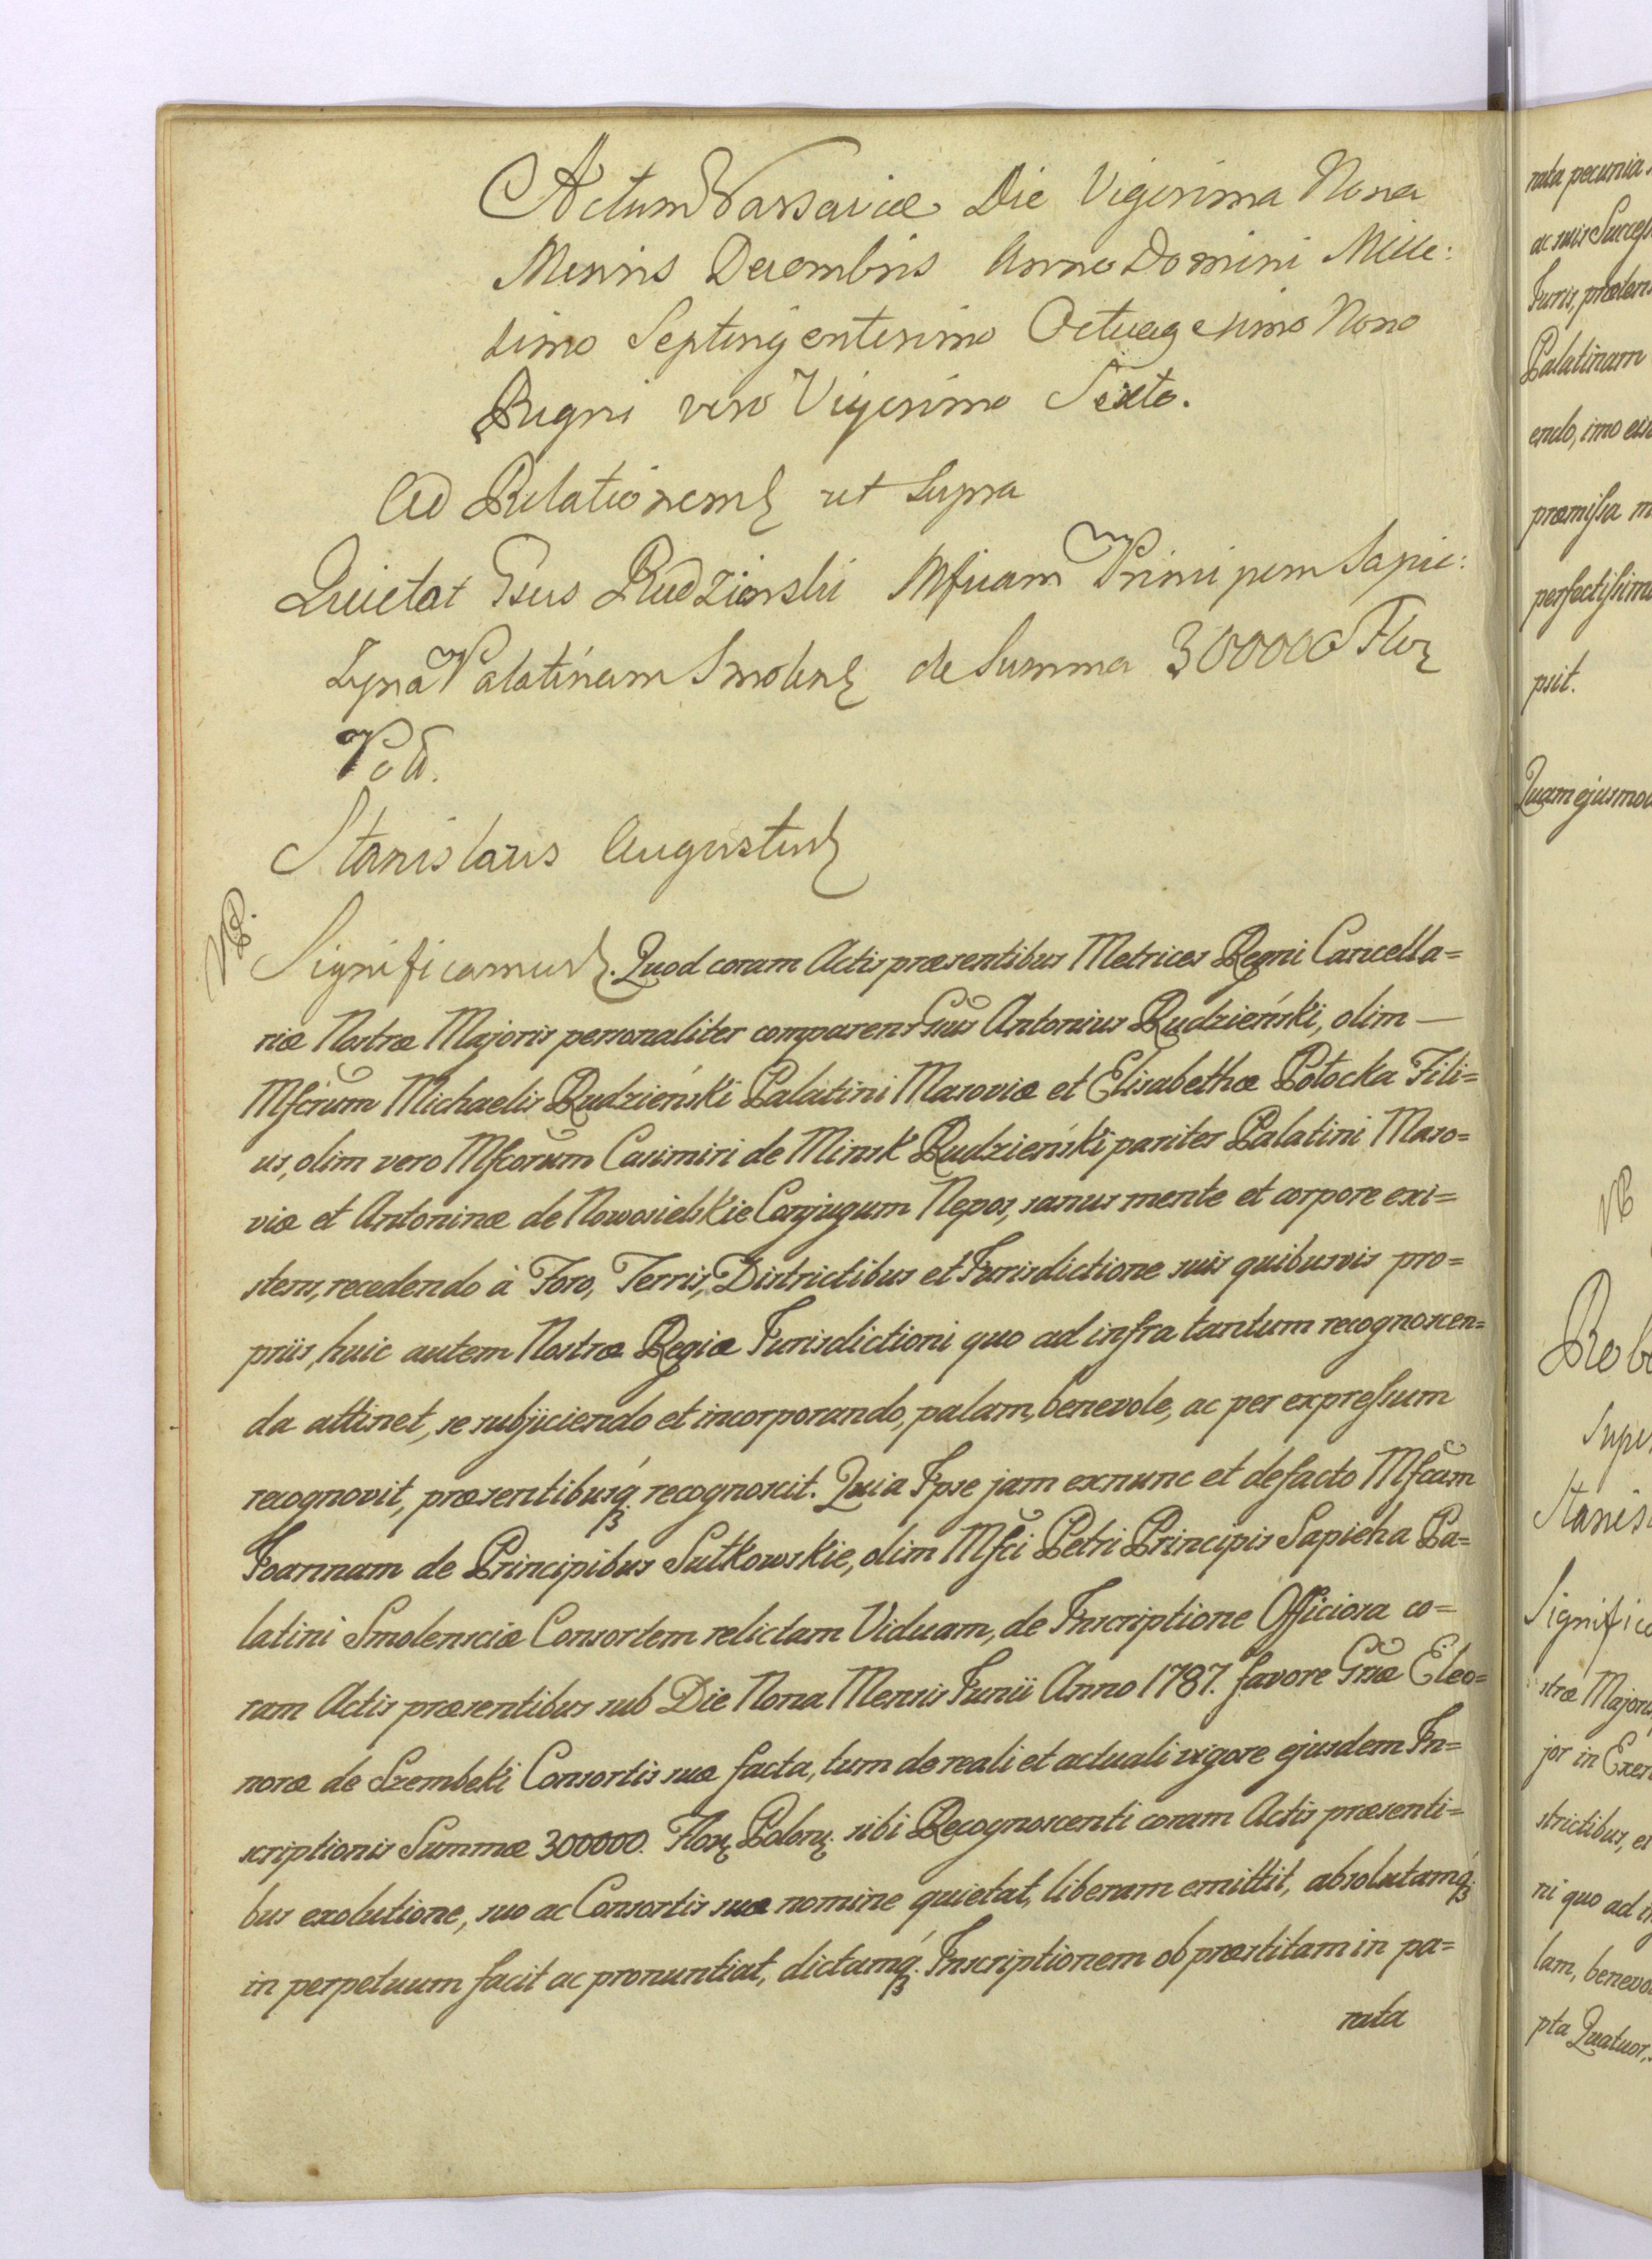 Actum Varsaviæ Die Vigesima Nona
Mensis Decembris Anno Domini Mille:
simo Septingentesimo Octuagesimo Nono
Regni vero Vigesimo Sexto.
Ad Relationem ut supra
Quietat Gsus Rudzienski Mfcam Principem Sapie:
żyna Palatinam Smolen de Summa 300000 Flor
Pol.
Stanislaus Augustus
NB.
Significamus. Quod coram Actis præsentibus Metrices Regni Cancella=
riæ Nostræ Majoris personaliter comparens Gsus Antonius Rudzieński, olim —
Mfcrum Michaelis Rudzieński Palatini Masoviæ et Elisabethæ Potocka Fili=
us, olim vero Mfcorum Casimiri de Minsk Rudzieński pariter Palatini Maso=
viæ et Antoninæ de Nowosielskie Conjugum Nepos, sanus mente et corpore exi=
stens, recedendo à Foro, Terris, Districtibus et Jurisdictione suis quibusvis pro=
priis, huic autem Nostræ Regiæ Jurisdictioni quo ad infra tantum recognoscen=
da attinet, se subjiciendo et incorporando, palam, benevole, ac per expressum
recognovit, præsentibusq́ recognoscit. Quia Ipse jam exnunc et defacto Mfcam
Joannam de Principibus Sułkowskie, olim Mfci Petri Principis Sapieha Pa=
latini Smolensciæ Consortem relictam Viduam, de Inscriptione Officiosa co=
ram Actis præsentibus sub Die Nona Mensis Junii Anno 1787. favore Gsæ Eleo=
noræ de Szembeki Consortis suæ facta, tum de reali et actuali vigore ejusdem In=
scriptionis Summæ 300000. Flor Polon. sibi Recognoscenti coram Actis præsenti=
bus exolutione, suo ac Consortis suæ nomine quietat, liberam emittit, absolutamq́
in perpetuum facit ac pronuntiat, dictamq́ Inscriptionem ob præstitam in pa=
rata
rata pecunia
ac suis Success
Juris, præten
Palatinam
endo, imo
præmissa
perfectissim
psit.
Quam ejusmod
NB
Robo
Super
Stanis
Signific
stræ Majoris
jor in Exer
strictibus, et
ni quo ad in
lam, benevo
pta Quatuor,